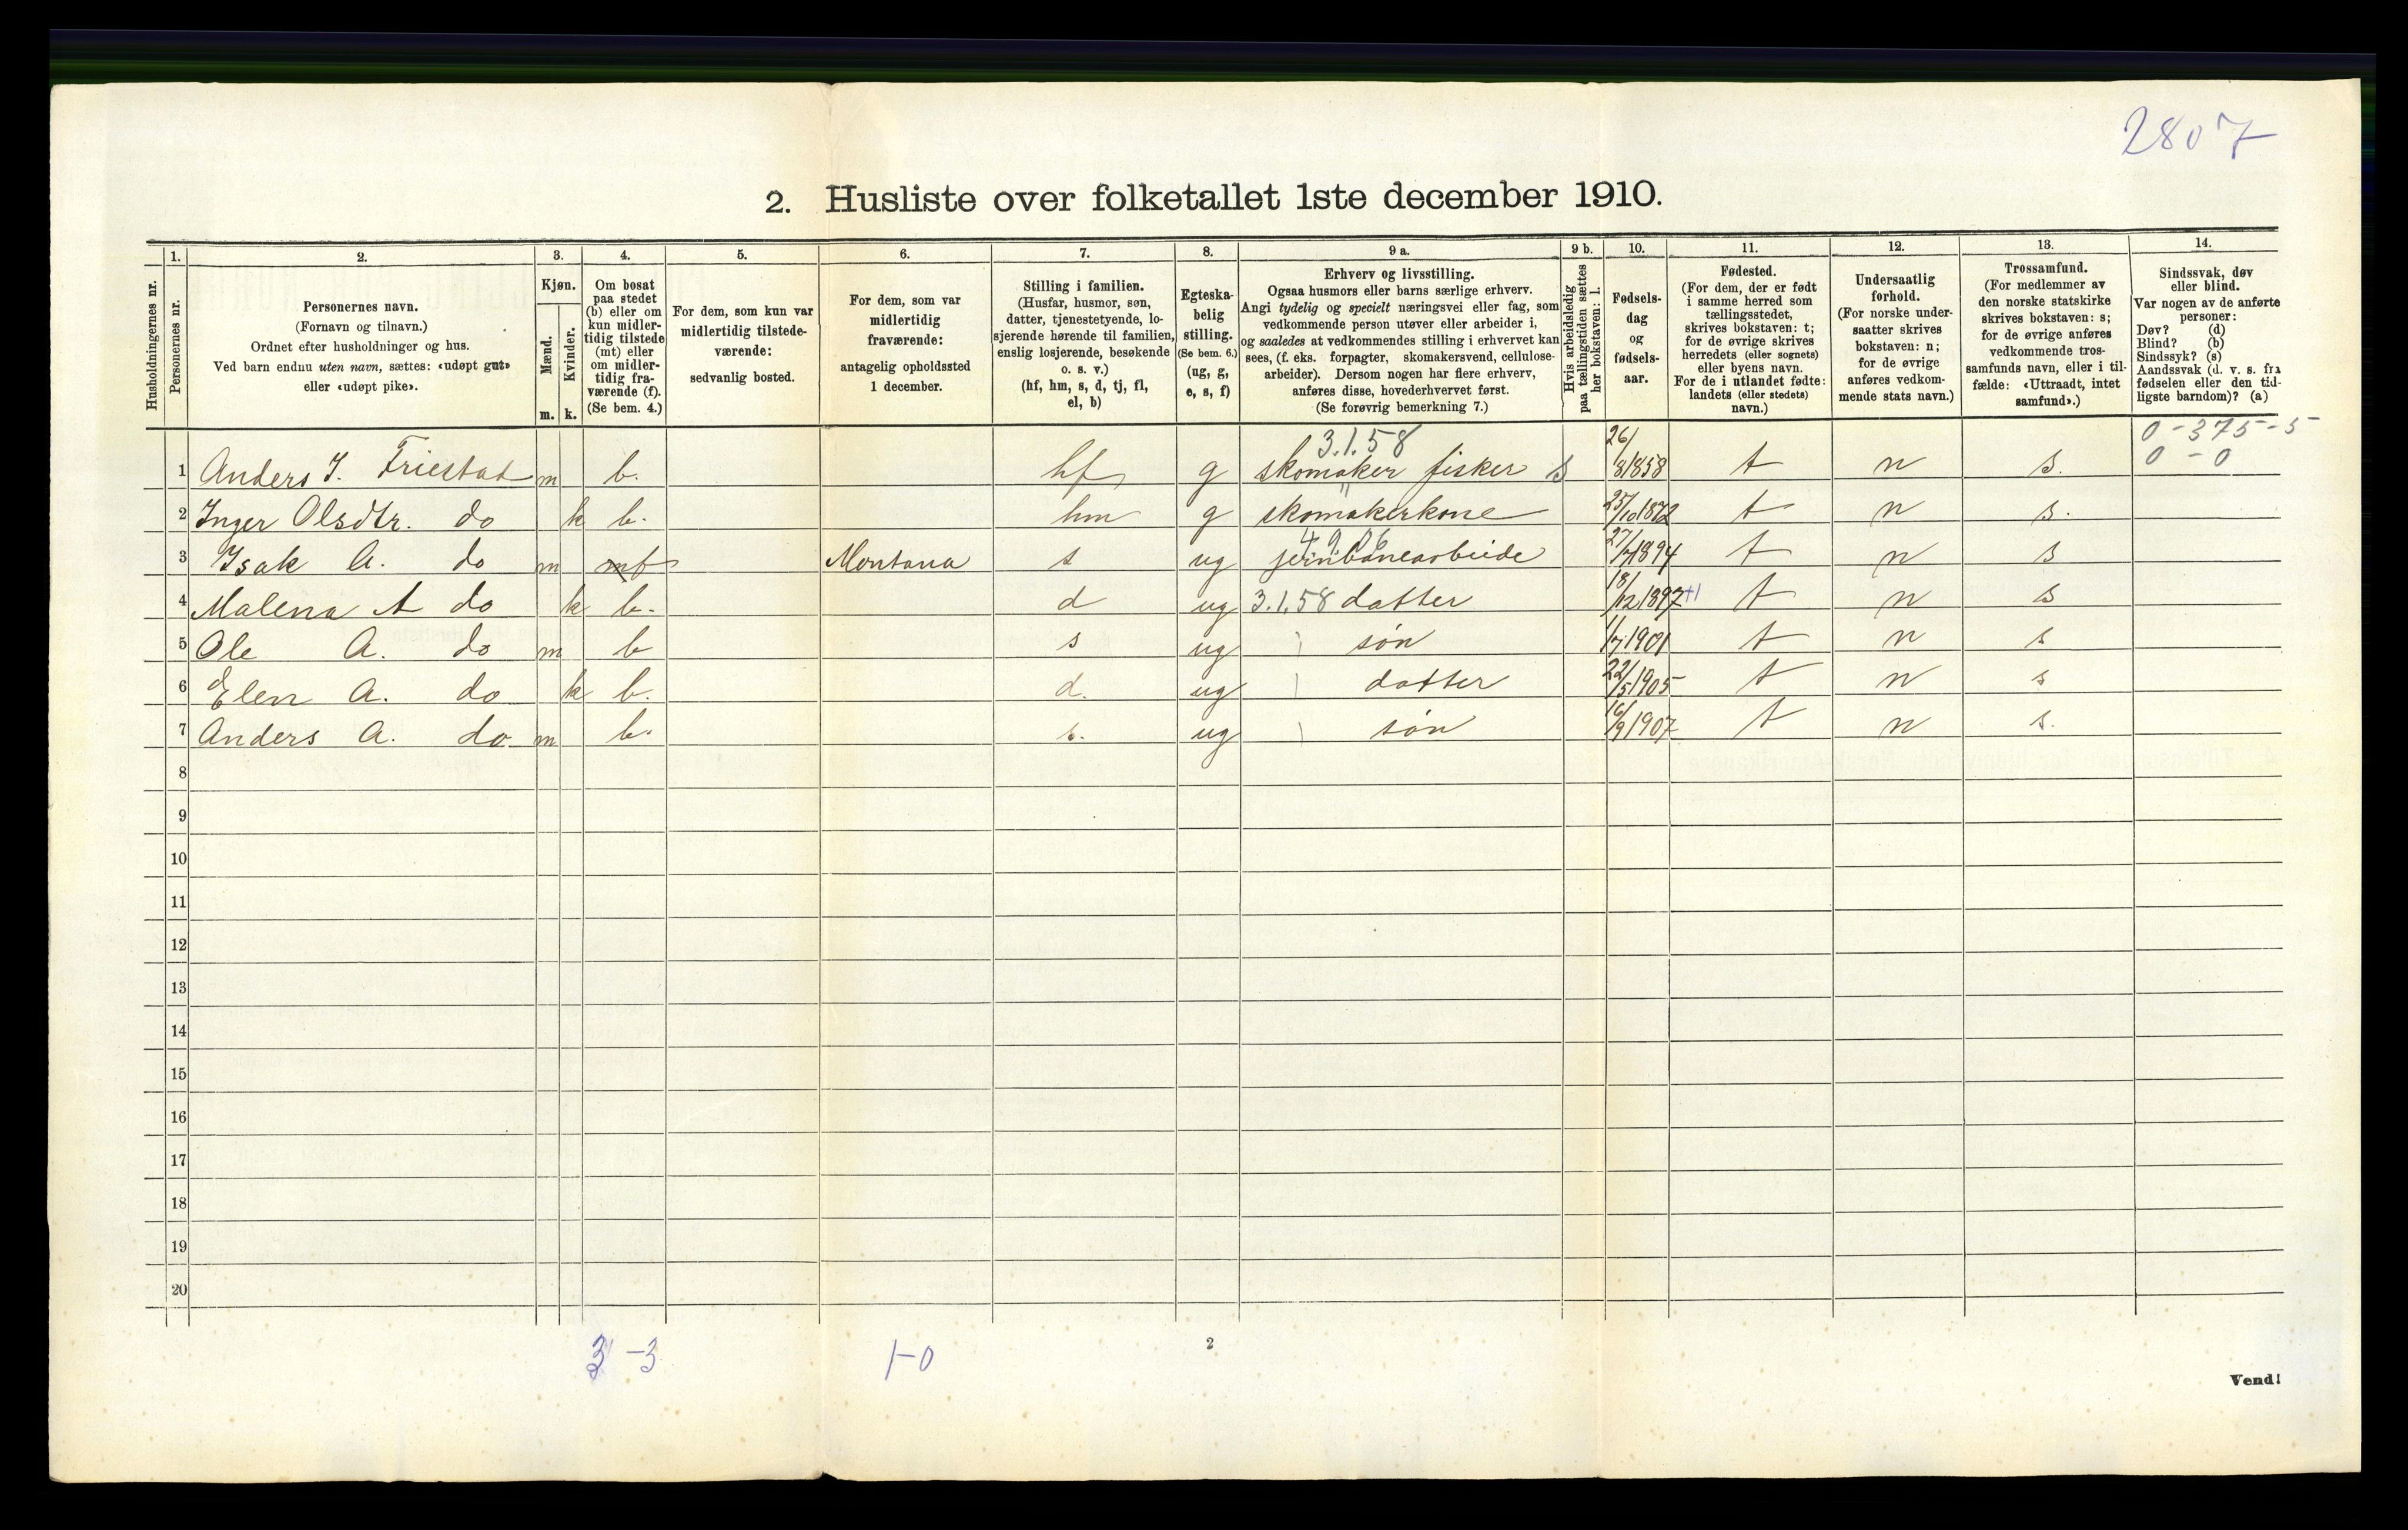 2807
2. Husliste over folketallet 1ste december 1910.
Husholdningernes nr.
1. Personernes nr.
2. Personernes navn.
(Fornavn og tilnavn.)
Ordnet efter husholdninger og hus.
Ved barn endnu uten navn, sættes: «udøpt gut»
eller «udøpt pike».
3. Kjøn.
Mænd. m.
Kvinder. k.
4. Om bosat
paa stedet
(b) eller om
kun midler-
tidig tilstede
(mt) eller
om midler-
tidig fra-
værende (f).
(Se bem. 4.)
5. For dem, som kun var
midlertidig tilstede-
værende:
sedvanlig bosted.
6. For dem, som var
midlertidig
fraværende:
antagelig opholdssted
1 december.
7. Stilling i familien.
(Husfar, husmor, søn,
datter, tjenestetyende, lo-
sjerende hørende til familien,
enslig losjerende, besøkende
o. s. v.)
(hf, hm, s, d, tj, fl,
el, b)
8. Egteska-
belig
stilling.
(Se bem. 6.)
(ug, g,
e, s, f)
9 a. Erhverv og livsstilling.
Ogsaa husmors eller barns særlige erhverv.
Angi tydelig og specielt næringsvei eller fag, som
vedkommende person utøver eller arbeider i,
og saaledes at vedkommendes stilling i erhvervet kan
sees, (f. eks. forpagter, skomakersvend, cellulose-
arbeider). Dersom nogen har flere erhverv,
anføres disse, hovederhvervet først.
(Se forøvrig bemerkning 7.)
9 b. Hvis arbeidsledig
paa tællingstiden sættes
her bokstaven: l.
10. Fødsels-
dag
og
fødsels-
aar.
11. Fødested.
(For dem, der er født
i samme herred som
tællingsstedet,
skrives bokstaven: t;
for de øvrige skrives
herredets (eller sognets)
eller byens navn.
For de i utlandet fødte:
landets (eller stedets)
navn.)
12. Undersaatlig
forhold.
(For norske under-
saatter skrives
bokstaven: n;
for de øvrige
anføres vedkom-
mende stats navn.)
13. Trossamfund.
(For medlemmer av
den norske statskirke
skrives bokstaven: s;
for de øvrige anføres
vedkommende tros-
samfunds navn, eller i til-
fælde: «Uttraadt, intet
samfund».)
14. Sindssvak, døv
eller blind.
Var nogen av de anførte
personer:
Døv? (d)
Blind? (b)
Sindssyk? (s)
Aandssvak (d. v. s. fra
fødselen eller den tid-
ligste barndom)? (a)
3.1.58 0-375-5
0-0
1 Anders I. Friestad m b. hf g skomaker fisker s 26/8 1858 t n s.
2 Inger Olsdtr. do k b. hm g skomakerkone 25/10 1872 t n s.
3 Isak A. do m mf Montana s ug jernbanearbeide 27/7 1894 t n s
4 Malena A do k b. d ug 3.1.58 datter 18/12 1897 +1 t n s
5 Ole A. do m b s ug søn 1/7 1901 t n s
6 Elen A. do k b. d. ug datter 22/5 1905 t n s
7 Anders A. do m b. s. ug søn 16/9 1907 t n s.
8
9
10
11
12
13
14
15
16
17
18
19
20
3-3 1-0 2
Vend!